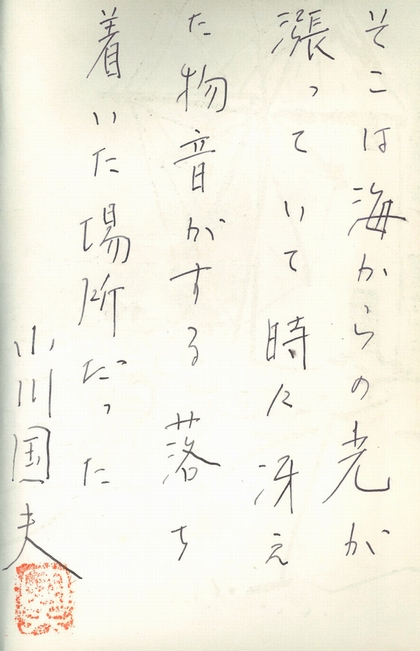 そこは海からの光が
漲っていて時々冴え
た物音がする落ち
着いた場所だった
小川国夫